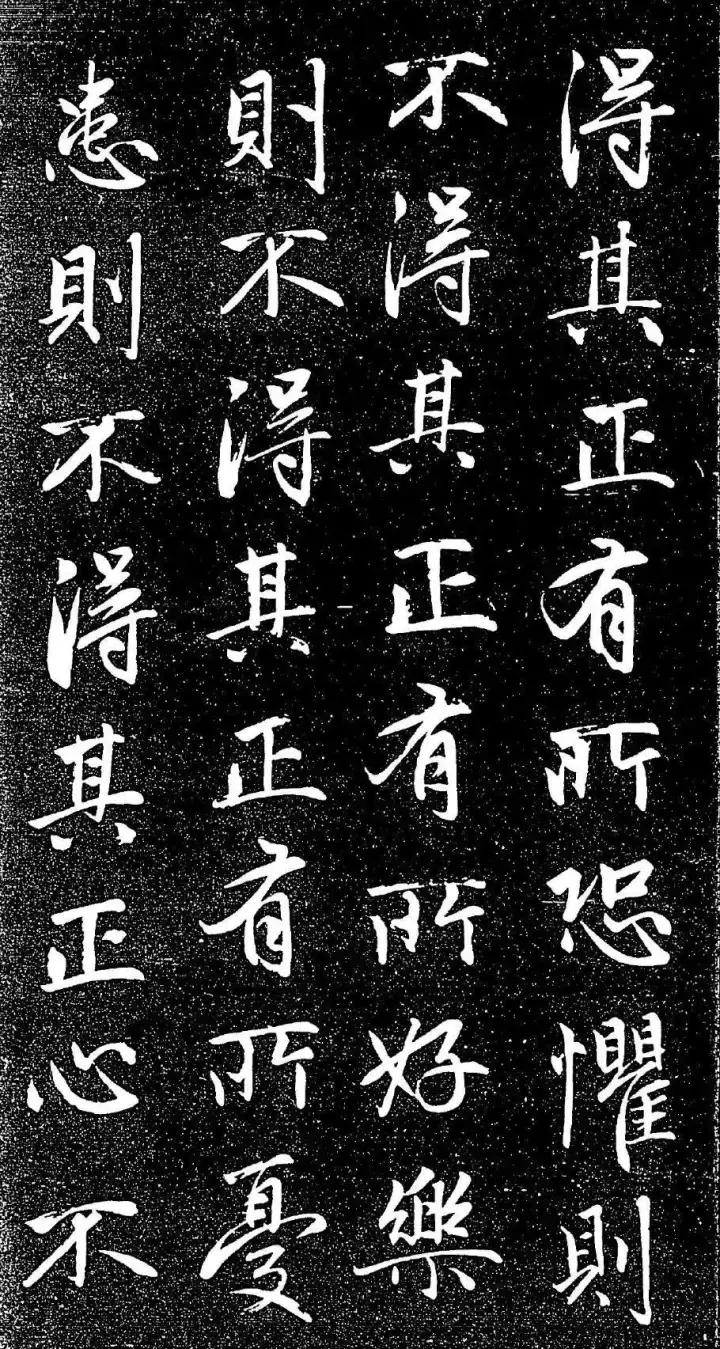 得其正有所恐懼則
不得其正有所好樂
則不得其正有所憂
患則不得其正心不